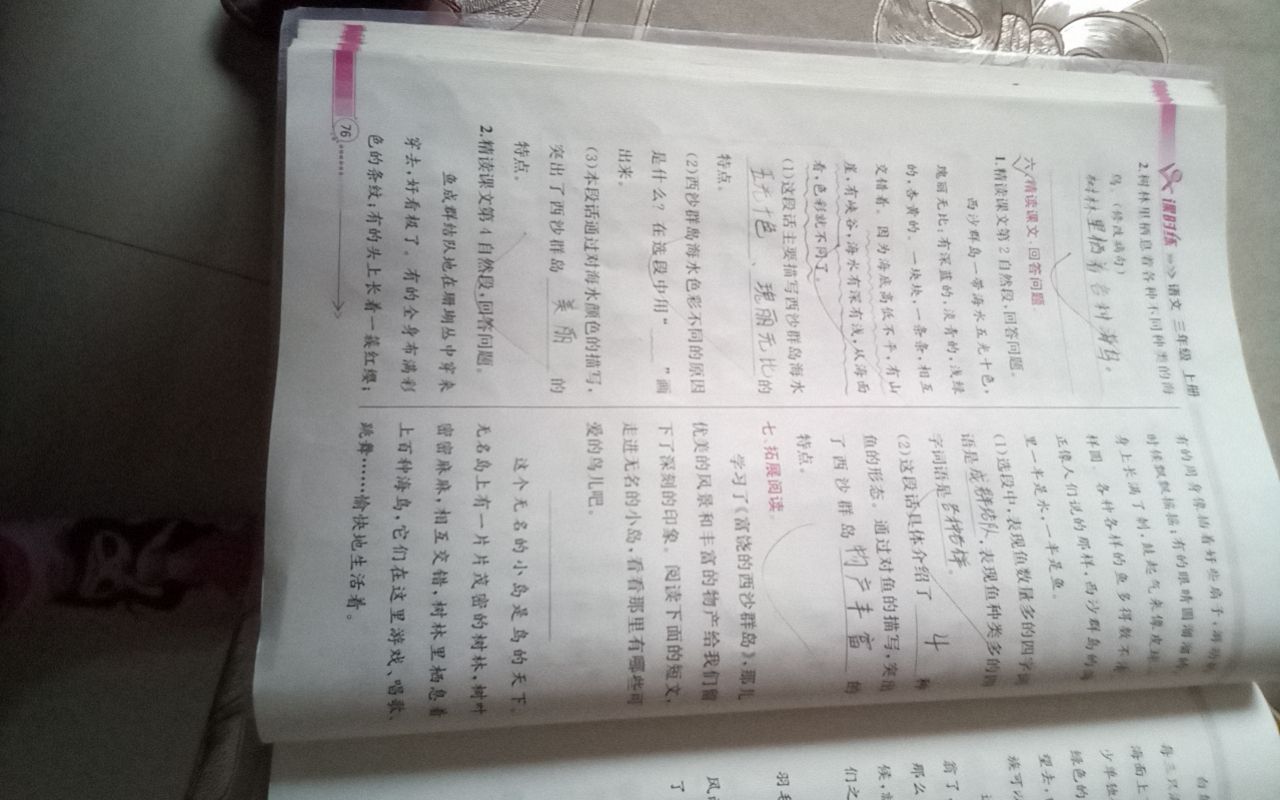 课时练 >>> 语文 三年级 上册
2.树林里栖息着各种不同种类的海
鸟。(修改病句)
树林里栖着各种海鸟。
六、精读课文,回答问题。
1.精读课文第2自然段,回答问题。
西沙群岛一带海水五光十色,
瑰丽无比:有深蓝的,淡青的,浅绿
的,杏黄的。一块块,一条条,相互
交错着。因为海底高低不平,有山
崖,有峡谷,海水有深有浅,从海面
看,色彩就不同了。
(1)这段话主要描写西沙群岛海水
五光十色、瑰丽无比的
特点。
(2)西沙群岛海水色彩不同的原因
是什么?在选段中用“____”画
出来。
(3)本段话通过对海水颜色的描写,
突出了西沙群岛 美丽 的
特点。
2.精读课文第4自然段,回答问题。
鱼成群结队地在珊瑚丛中穿来
穿去,好看极了。有的全身布满彩
色的条纹;有的头上长着一簇红缨;
76
有的周身像插着好些扇子,游动的
时候飘飘摇摇;有的眼睛圆溜溜的,
身上长满了刺,鼓起气来像皮球一
样圆。各种各样的鱼多得数不清。
正像人们说的那样,西沙群岛的海
里一半是水,一半是鱼。
(1)选段中,表现鱼数量多的四字词
语是成群结队,表现鱼种类多的四
字词语是各种各样。
(2)这段话具体介绍了 4 种
鱼的形态。通过对鱼的描写,突出
了西沙群岛 物产丰富 的
特点。
七、拓展阅读。
学习了《富饶的西沙群岛》,那儿
优美的风景和丰富的物产给我们留
下了深刻的印象。阅读下面的短文,
走进无名的小岛,看看那里有哪些可
爱的鸟儿吧。
这个无名的小岛是鸟的天下。
无名岛上有一片片茂密的树林,树叶
密密麻麻,相互交错,树林里栖息着
上百种海鸟,它们在这里游戏、唱歌、
跳舞……愉快地生活着。
每三只
海面上
少单独
绿色的
望去,
族可以
翁了,
那么
候,
们之
羽毛
风
了